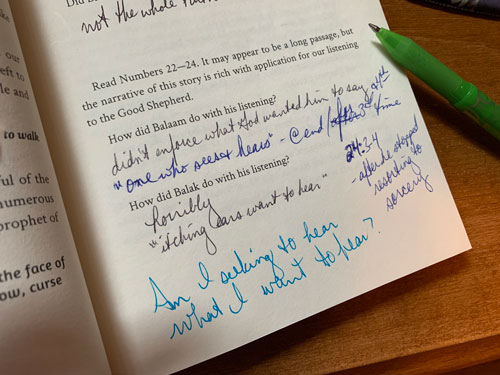 not the whole
Read Numbers 22—24. It may appear to be a long passage, but
the narrative of this story is rich with application for our listening
to the Good Shepherd.
How did Balaam do with his listening?
didn't enforce what God wanted him to say
"one who sees & hears" - @ end 3rd 4th time
24:3-4
- after he stopped
resorting to
sorcery
How did Balak do with his listening?
horribly
"itching ears want to hear"
Am I seeking to hear
what I want to hear?
our
eft to
le and
to walk
ful of the
numerous
prophet of
the face of
ow, curse